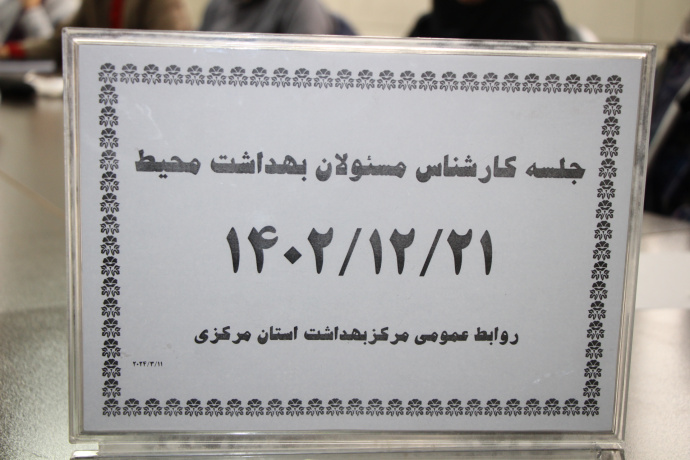 جلسه کارشناس مسئولان بهداشت محیط
۱۴۰۲/۱۲/۲۱
روابط عمومی مرکزبهداشت استان مرکزی
۲۰۲۴/۳/۱۱